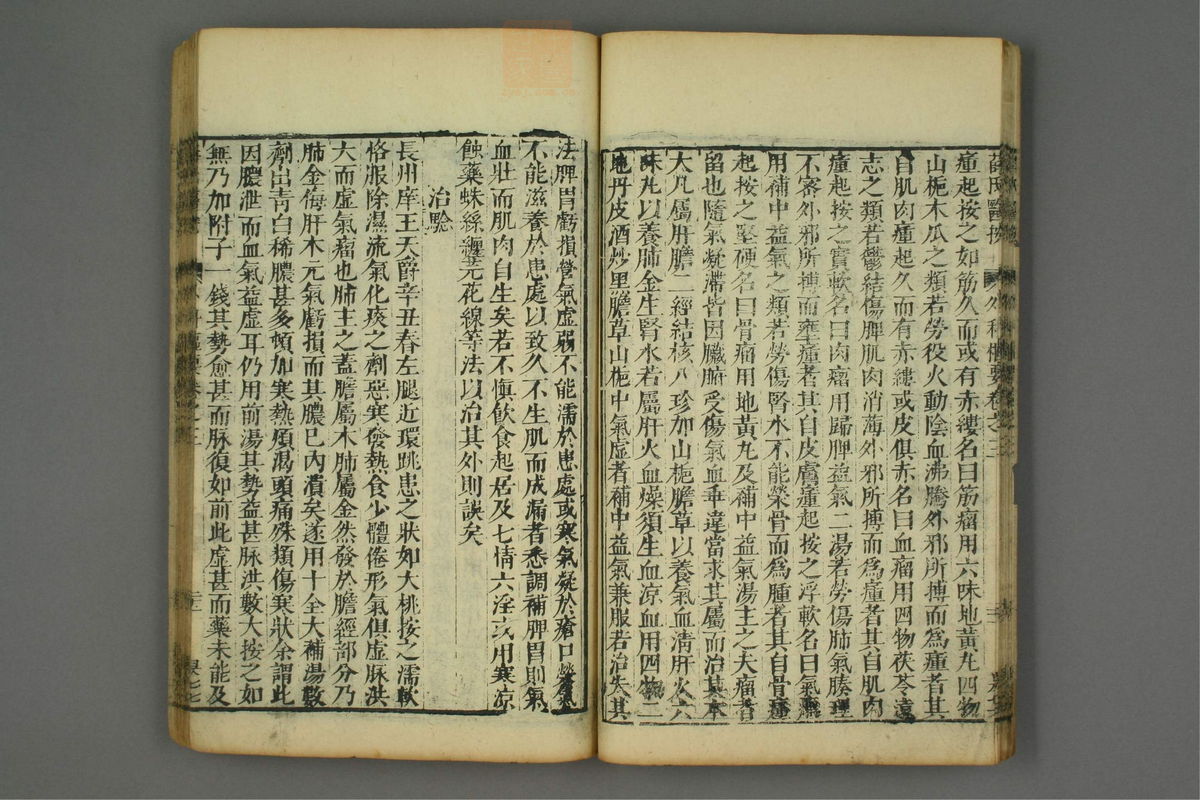 薛氏醫按 外科樞要卷之三
瘇起按之如筋久而或有赤縷名曰筋瘤用六味地黃丸四物
山梔木瓜之類若勞役火動陰血沸騰外邪所搏而為瘇者其
自肌肉瘇起久而有赤縷或皮俱赤名曰血瘤用四物茯苓遠
志之類若鬱結傷脾肌肉消薄外邪所搏而為瘇者其自肌肉
瘇起按之實軟名曰肉瘤用歸脾益氣二湯若勞傷肺氣腠理
不密外邪所搏而壅瘇者其自皮膚瘇起按之浮軟名曰氣瘤
用補中益氣之類若勞傷腎水不能榮骨而為腫者其自骨瘇
起按之堅硬名曰骨瘤用地黃丸及補中益氣湯主之夫瘤者
留也隨氣凝滯皆因臟腑受傷氣血乖違當求其屬而治其本
大凡屬肝膽二經結核八珍加山梔膽草以養氣血清肝火六
味丸以養肺金生腎水若屬肝火血燥須生血涼血用四物二
地丹皮酒炒黑膽草山梔中氣虛者補中益氣兼服若治失其
法脾胃虧損營氣虛弱不能濡於患處或寒氣凝於瘡口榮氣
不能滋養於患處以致久不生肌而成漏者悉調補脾胃則氣
血壯而肌肉自生矣若不慎飲食起居及七情六淫或用寒涼
蝕藥蛛絲纏芫花線等法以治其外則誤矣
治驗
長州庠王天爵辛丑春左腿近環跳患之狀如大桃按之濡軟
恪服除濕流氣化痰之劑惡寒發熱食少體倦形氣俱虛脉洪
大而虛氣瘤也肺主之蓋膽屬木肺屬金然發於膽經部分乃
肺金侮肝木元氣虧損而其膿已內潰矣遂用十全大補湯數
劑出青白稀膿甚多頓加寒熱煩渴頭痛殊類傷寒狀余謂此
因膿泄而血氣益虛耳仍用前湯其勢益甚脉洪數大按之如
無乃加附子一錢其勢愈甚而脉復如前此虛甚而藥未能及